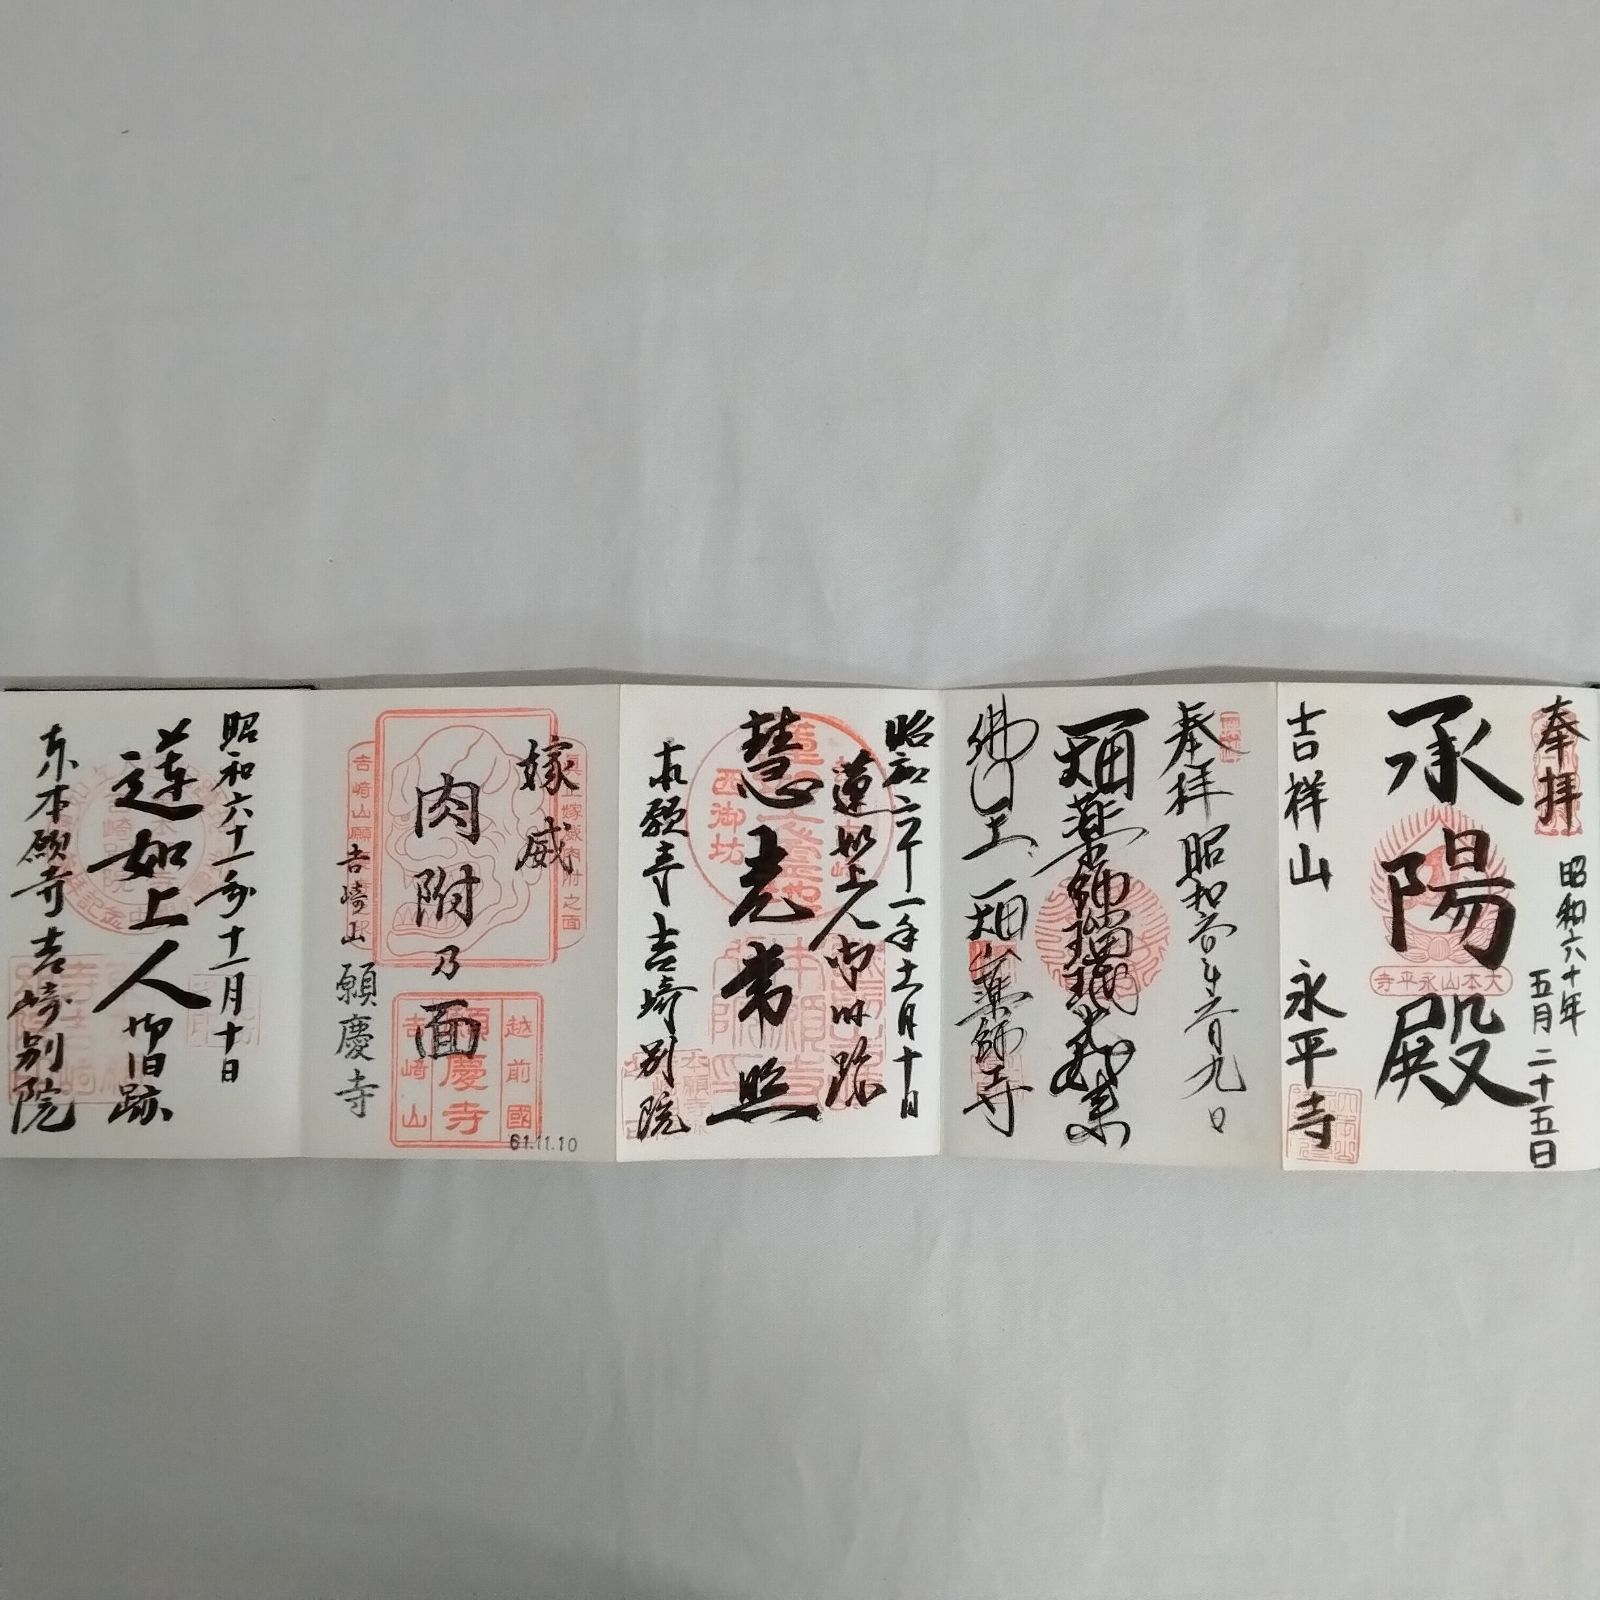 奉拝
昭和六十年
五月二十五日
承陽殿
大本山永平寺
吉祥山 永平寺
奉拝 昭和
九日
薬師瑠璃
佛土
薬師寺
昭和六十一年十一月十日
蓮如上人御旧跡
慧光常照
西御坊
本願寺吉崎別院
嫁威
肉附乃面
吉崎山 願慶寺
吉崎山願慶寺
嫁威肉附之面
越前國
願慶寺
吉崎山
61.11.10
昭和六十一年十一月十日
蓮如上人御旧跡
东本願寺吉崎別院